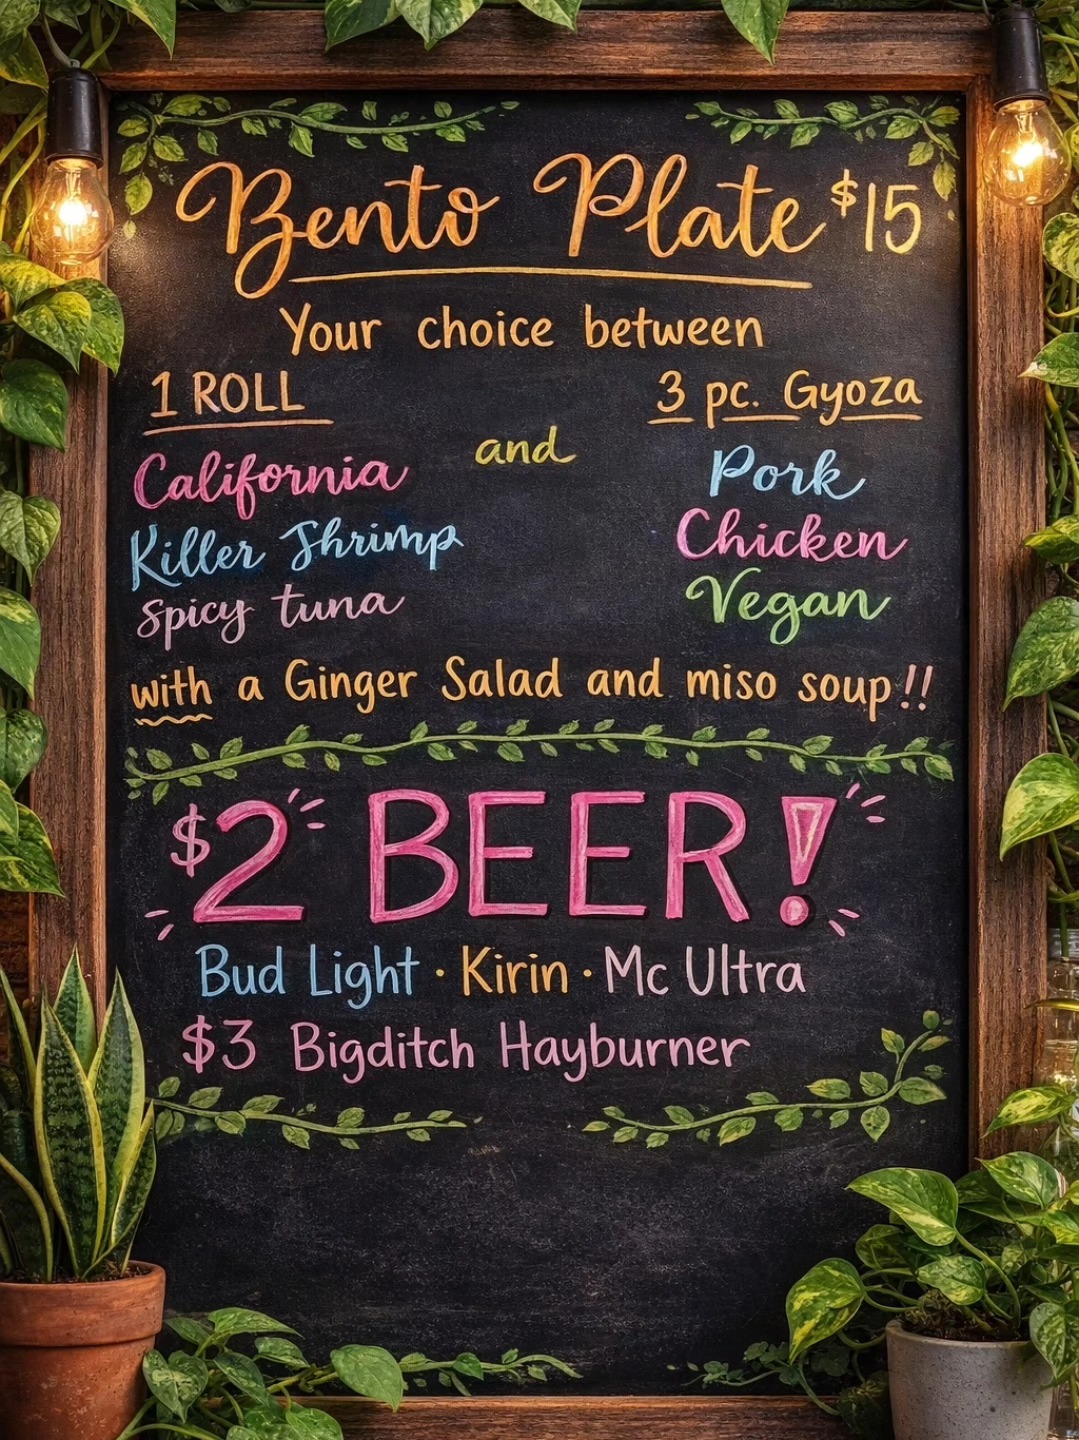 Bento Plate $15
Your choice between
1 ROLL
and
3 pc. Gyoza
California
Killer Shrimp
spicy tuna
Pork
Chicken
Vegan
with a Ginger Salad and miso soup!!
$2 BEER!
Bud Light · Kirin · Mc Ultra
$3 Bigditch Hayburner